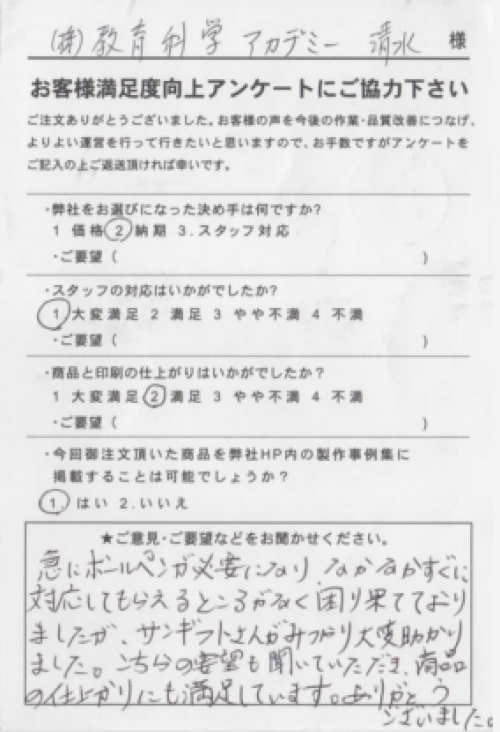 (株)教育科学アカデミー 清水 様
お客様満足度向上アンケートにご協力下さい
ご注文ありがとうございました。お客様の声を今後の作業・品質改善につなげ、
よりよい運営を行って行きたいと思いますので、お手数ですがアンケートを
ご記入の上ご返送頂ければ幸いです。
・弊社をお選びになった決め手は何ですか?
1 価格 2 納期 3.スタッフ対応
・ご要望 ( )
・スタッフの対応はいかがでしたか?
1 大変満足 2 満足 3 やや不満 4 不満
・ご要望 ( )
・商品と印刷の仕上がりはいかがでしたか?
1 大変満足 2 満足 3 やや不満 4 不満
・ご要望 ( )
・今回御注文頂いた商品を弊社HP内の製作事例集に
掲載することは可能でしょうか?
1. はい 2.いいえ
★ご意見・ご要望などをお聞かせください。
急にボールペンが必要になり、なかなかすぐに
対応してもらえるところがなく困り果てており
ましたが、サンギフトさんがみつかり大変助かり
ました。こちらの要望も聞いていただき、商品
の仕上がりにも満足しています。ありがとう
ございました。